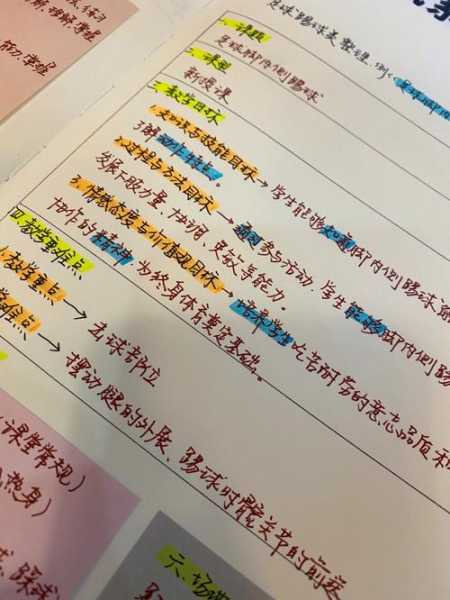 足球脚内侧踢球
一、课题
二、课型
新授课
三、教学目标
1.知识与技能目标→学生能够 脚内侧踢球
了解动作特点。
2.过程与方法目标→通过参与活动,学生能够脚内侧踢
发展下肢力量、协调、灵敏等能力。
3.情感态度与价值观目标→培养学生吃苦耐劳的意志品质和
协作的精神,为终身体育奠定基础。
四、教学重难点
教学重点→击球部位
难点→摆动腿的外展、踢球时髋关节的前送
课堂常规)
热身)
踢球
六、场地